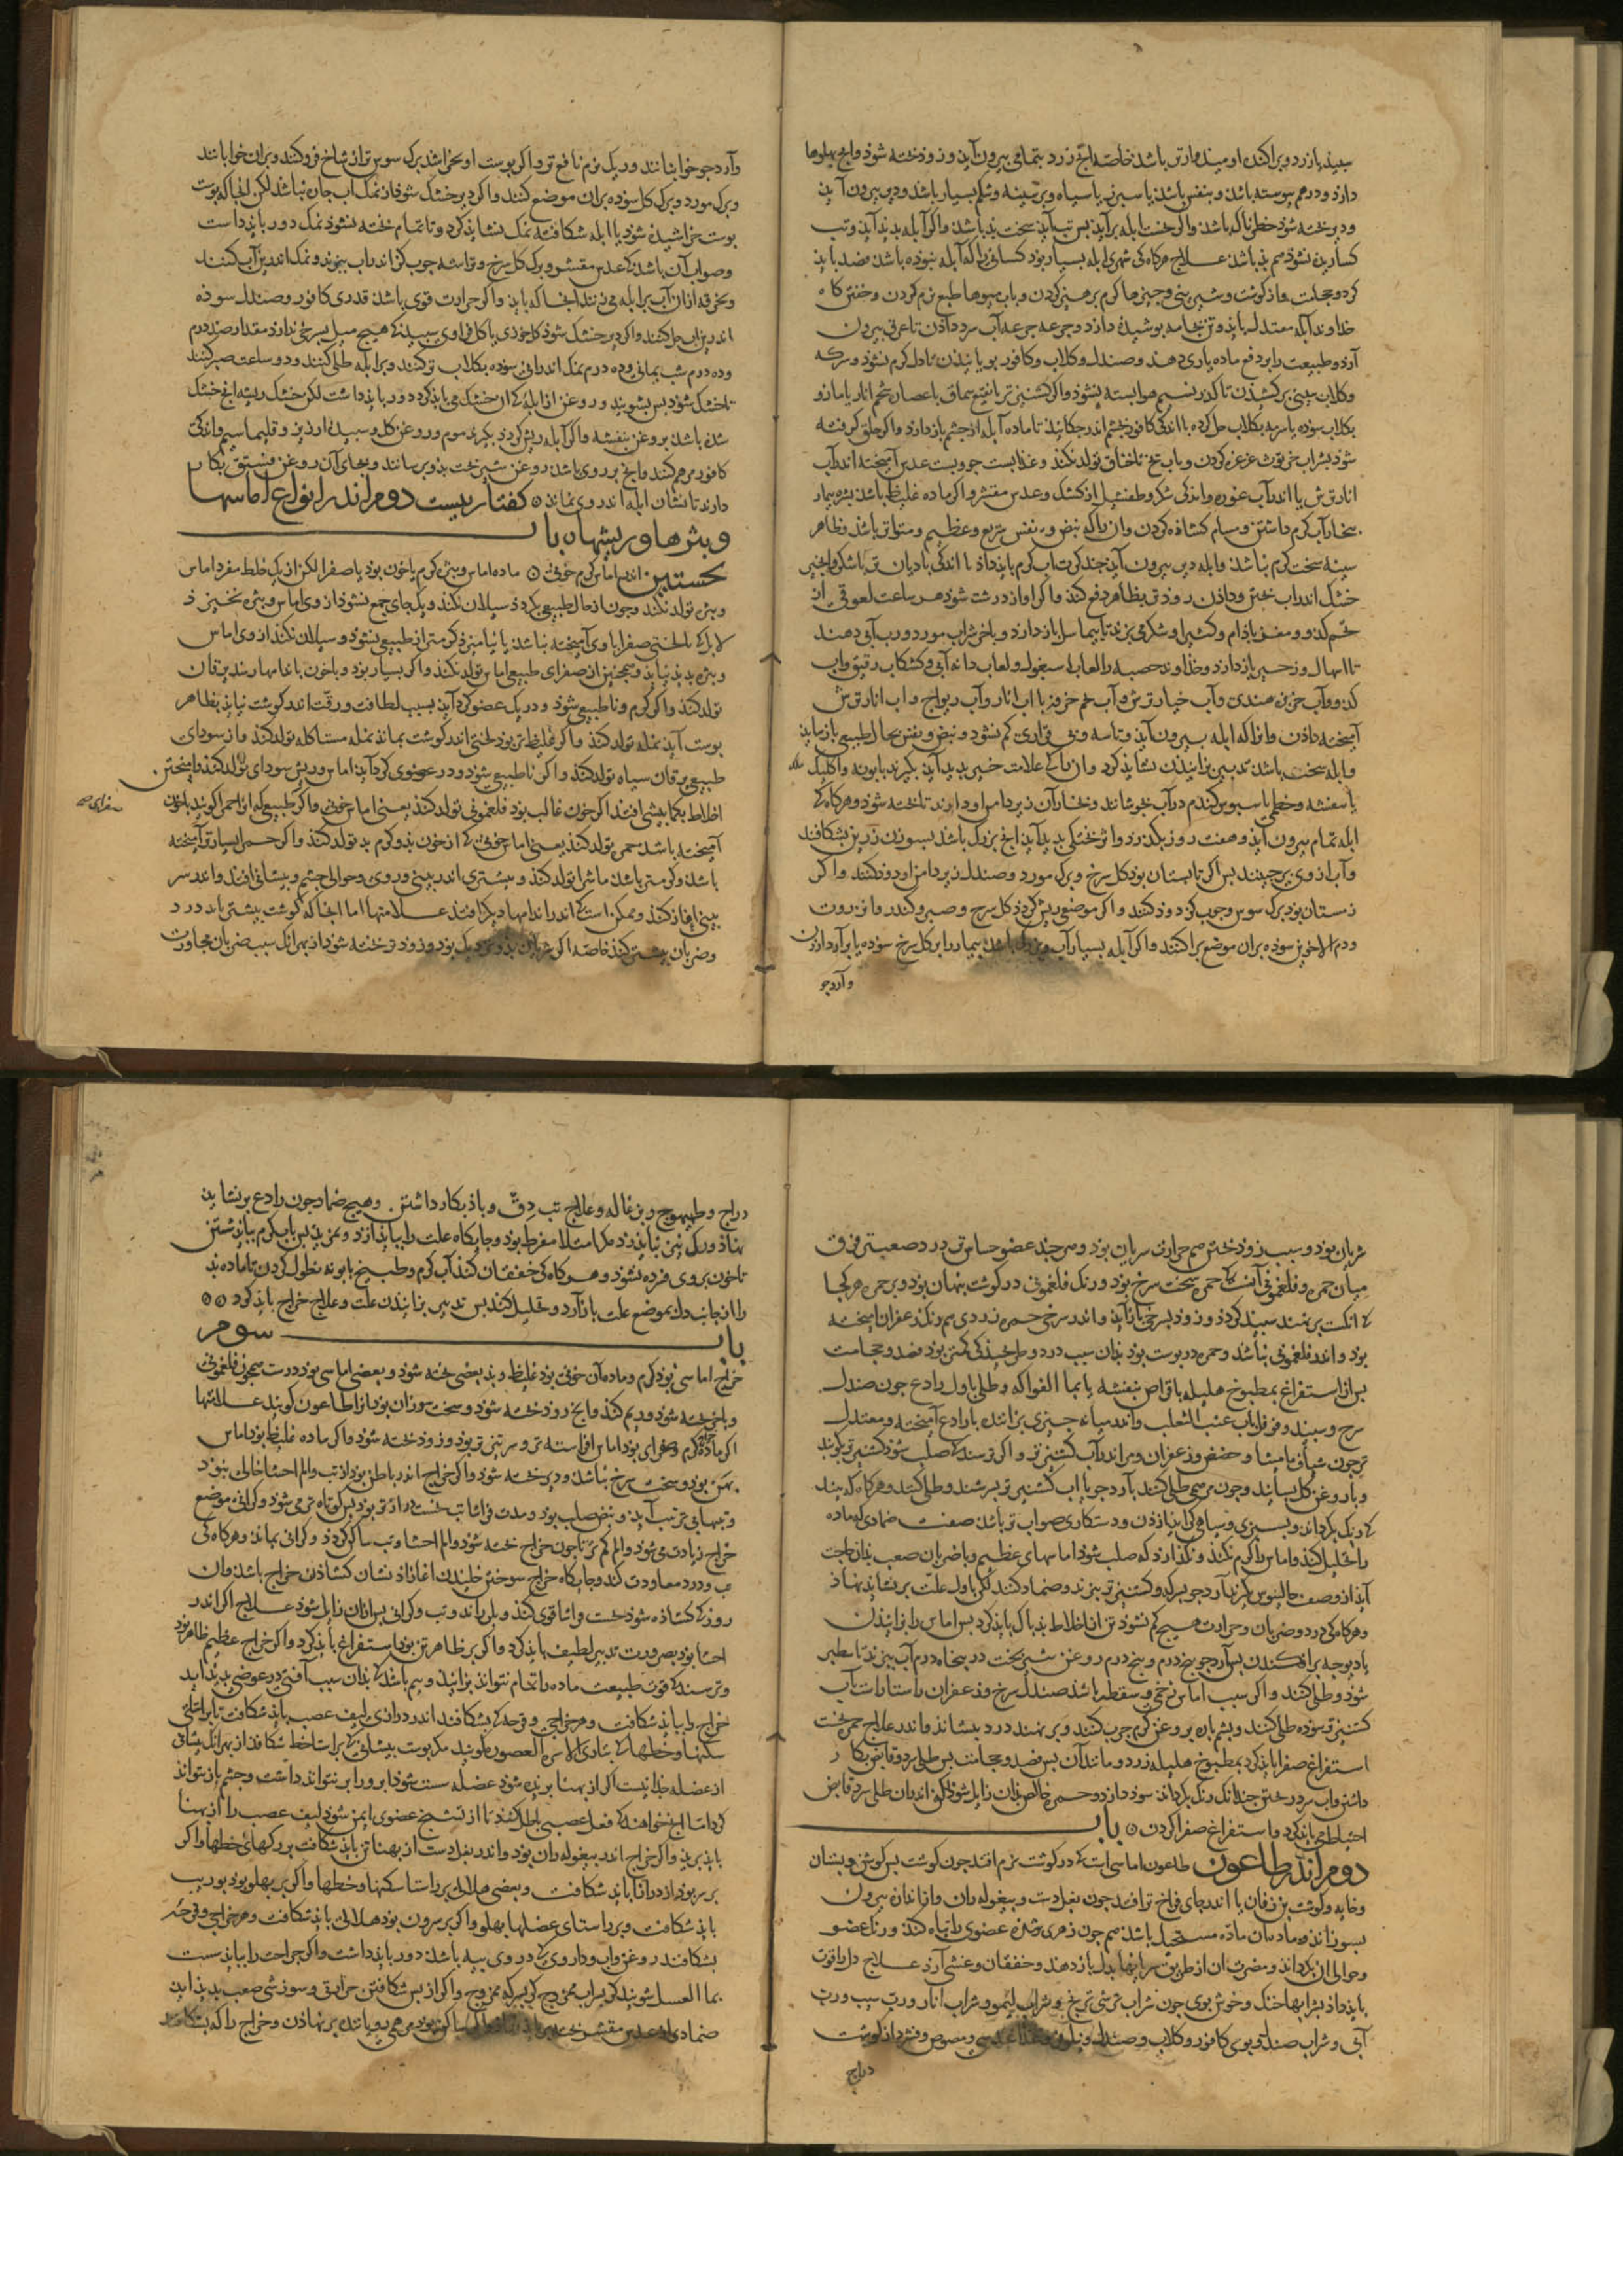 سپید یا زرد و پراکنده او میند وارتر باشد خاصه انچ زرد بتمامی بیرون آید و زود پخته شود و انچ پهلوها
دارد و در هم پیوسته باشد و بنفش باشد یا سبز یا سیاه و بر سینه و شکم بسیار باشد و دیر بیرون آید
و دیر پخته شود خطرناک باشد و اگر نخست ابله برآید پس تب آید سخت بد باشد و اگر آبله بدید آید و تب
کساریده نشود هم بد باشد علاج هرگاه کی شهری ابله بسیار بود کسانی را که آبله نبوده باشد فصد باید
کرد و حجامت و از گوشت و شیرینی و چیزها گرم پرهیز کردن و باب میوها طبع نرم کردن و خفتن گاه
خداوند آبله معتدل باید و تن بجامه پوشیده دارد و جرعه جرعه آب سرد دادن تا عرق بیرون
آرد و طبیعت را بر دفع ماده یاری دهد و صندل و گلاب و کافور بویانیدن تا دل گرم نشود و سرکه
و گلاب ببینی برکشیدن تا گذر نسیم هوا بسته نشود و آب گشنیز تر با نقیع سماق با عصاره شحم انار یا مازو
بگلاب سوده یا سرمه بگلاب حل کرده با اندکی کافور بچشم اندر چکانید تا ماده آبله از چشم باز دارد و اگر حلق گرفته
شود بشراب خرتوث غرغره کردن و باب یخ تا خناق تولد نکند و غذا بست جو و بست عدس آمیخته اندر آب
انار ترش یا اندر آب غوره و اندکی شکر و طفشیل از کشک و عدس مقشر و اگر ماده غلیظ باشد بشره بیمار
ببخار آب گرم داشتن و مسام گشاده کردن و آن را که نبض و نفس سریع و عظیم و متواتر باشد و ظاهر
سینه سخت گرم نباشد و ابله دیر بیرون آید چند کرت آب گرم باید داد با اندکی بادیان تر یا شکر و انجیر
خشک اندر آب پختن و دادن زودتر بظاهر دفع کند و اگر آواز درشت شود هر ساعت لعوقی از
تخم کدو و مغز بادام و کثیرا و شکر می پزند تا بیماسل باز دارد و باخر شراب مورد و رب آبی دهند
تا اسهال و زحیر باز دارد و خداوند حصبه را لعاب اسبغول و لعاب دانه آبی و کشکاب رقیق و آب
کدو و آب خربزه هندی و آب خیار ترش و آب تخم خرفه با آب انار و آب ریواج و آب انار ترش
آمیخته دادن و آنرا که ابله بیرون آید و تاسه و بی قراری کم نشود و نبض و نفس بحال طبیعی باز نیاید
و ابله سخت باشد تدبیر پزانیدن نشاید کرد و آن را که علامت خیر بدید آید بگیرند بابونه و اکلیل
یا بنفشه و خطمی یا سبوس گندم در آب جوشانند و بخار آن زیر دامن او دارند تا پخته شود و هرگاه کی
ابله تمام بیرون آید و هفت روز بگذرد و اثر پختگی بدید آید انچ بزرگ باشد بسوزن زرین بشکافند
و آب از وی برچینند پس اگر تابستان بود گل سرخ و برگ مورد و صندل زیر دامن او دود کنند و اگر
زمستان بود برگ سوسن و چوب گز دود کنند و اگر موضعی ریش گردد گل سرخ و صبر و کندر و انزروت
و دم الاخوین سوده بران موضع پراکنند و اگر آبله بسیار آب و بزرگ باشد بیمار را بر گل سرخ سوده یا بر آرد ارزن
و آرد جو
و آرد جو خوابانند و ریک نرم نافع تر و اگر پوست او بخراشد برگ سوسن تر از شاخ فرو کنند و بران خوابانند
و برگ مورد و برگ گل سوده بران موضع کنند و اگر دیر خشک شود از نمک اب چاره نباشد لکن انجا که پوست
پوست خراشیده شود یا ابله شکافته نمک نشاید کرد و تا تمام پخته نشود نمک دور باید داشت
و صواب آن باشد که عدس مقشر و برگ گل سرخ و تراشه چوب گز اندر آب بپزند و نمک اندرین آب کنند
و بخرقه از ان آب بر ابله می زنند انجا که باید و اگر حرارت قوی باشد قدری کافور و صندل سوده
اندرین اب حل کنند و اگر دیر خشک شود گل خوزی یا گل ارمنی سپید که هیچ میل بسرخی ندارد مقدار صد درم
و ده درم شب یمانی و ده درم نمک اندرانی سوده بگلاب تر کنند و بر ابله طلی کنند و دو ساعت صبر کنند
تا خشک شود پس بشویند و روغن از ابله که ان خشک می باید کرد دور باید داشت لکن خشک ریشه انچ خشک
شده باشد بروغن بنفشه و اگر آبله ریش گردد بگیرند موم و روغن گل و سپیده ارزیز و قلیمیا سیم و اندکی
کافور مرهم کنند و انچ بر روی باشد روغن شیر پخت بدو برسانند و بجای آن روغن فستق بکار
دارند تا نشان ابله اندر وی نماند گفتار بیست دوم اندر انواع اماسها
و بثرها و ریشها باب
نخستین اندر اماس گرم خونی ماده اماس و بثر گرم یا خون بود یا صفرا لکن از یک خلط مفرد اماس
و بثره تولد نکند و چون از حال طبیعی بگردد سیلان نکند و بیک جای جمع نشود از وی اماس و بثره نخیزد
لابل که تا لختی صفرا با وی آمیخته نباشد یا نیامیزد گرمتر از طبیعی نشود و سیلان نکند از وی اماس
و بثره بدید نیاید و همچنین از صفرای طبیعی اماس تولد نکند و اگر بسیار بود و با خون باندامها رسد یرقان
تولد کند و اگر گرم و ناطبیعی شود و در یک عضو گرد آید بسبب لطافت و رقت اندر گوشت نیاید بظاهر
پوست آید نمله تولد کند و اگر غلیظ تر بود لختی اندر گوشت بماند نمله متاکله تولد کند و از سودای
طبیعی یرقان سیاه تولد کند و اگر ناطبیعی شود و در عضوی گرد آید اماس و ریش سودای تولد کند و آمیختن
صفرای صح
اخلاط بکما بیشی افتد اگر خون غالب بود فلغمونی تولد کند یعنی اماس خونی و اگر طبیعی که انرا حمرا گویند با خون
آمیخته باشد حمره تولد کند یعنی اماس خونی که از خون بد و گرم بد تولد کند و اگر حمرا بسیارتر آمیخته
باشد و گرمتر باشد ماشرا تولد کند و بیشتری اندر بینی و روی و حوالی چشم و پیشانی افتد و اندر سر
بینی اغاز کند و ممکن است که اندر اندامها دیگر افتد علامتها اما انجا که گوشت بیشتر باید درد
و ضربان بیشتر کند خاصه اگر شریان بدو نزدیک بود و زود پخته شود از بهر انک سبب ضربان مجاورت
شریان بود و سبب زود پختن هم حرارت شریان بود و هر چند عضو حساس تر درد صعبتر فرق
میان حمره و فلغمونی آنست که حمره سخت سرخ بود و رنگ فلغمونی در گوشت پنهان بود و بر حمره هر کجا
که انگشت برنهند سپید گردد و زود بسرخی باز آید و اندر سرخی حمره زردی هم رنگ زعفران امیخته
بود و اندر فلغمونی نباشد و حمره در پوست بود بدان سبب درد و طرنجیدگی کمتر بود فصد و حجامت
پس از استفراغ بمطبوخ هلیله یا قراص بنفشه یا بما الفواکه و طلی باول رادع چون صندل
سرخ و سپید و فوفل باب عنب الثعلب و اندر میانه چیزی پزاننده با رادع آمیخته و معتدل
تر چون شیاف مامیثا و حضض و زعفران و مر اندر آب گشنیز تر و اگر ترسند که صلب شود گشنیز تر بکوبند
و با روغن گل بسایند و چون مرهمی طلی کنند یا آرد جو باب گشنیز تر بسرشند و طلی کنند و هرگاه که بینند
که رنگ بگرداند و بسبزی و سیاهی گراید باز زدن و دستکاری صواب تر باشد صفت ضمادی که ماده
را تحلیل کند و اماس را گرم نکند و نگذارد که صلب شود اماسهای عظیم و با ضربان صعب بدان حاجت
آید از وصف جالینوس بگیرند آرد جو بسرکه و گشنیز تر بپزند و ضماد کنند لکن باول علت بر نشاید نهاد
و هرگاه کی درد و ضربان و حرارت هیچ کم نشود تن از اخلاط بد پاک باید کرد پس اماس را پزانیدن
شود و طلی کنند و اگر سبب اماس زخمی و سقطه باشد صندل سرخ و زعفران راستاراست آب
گشنیز تر سوده طلی کنند و پشم پاره بروغن گرم چرب کنند و بر نهند درد بنشاند و اندر علاج حمره نخست
استفراغ صفرا باید کرد بمطبوخ هلیله زرد و مانند آن پس فصد و حجامت پس طلی سرد و قابض بکار
داشتن و آب سرد ریختن چندانک رنگ بگرداند سود دارد و حمره خالص بدان زایل شود لکن اندران طلی سرد قابض
احتیاطی باید کرد و استفراغ صفرا کردن باب
دوم اندر طاعون طاعون اماسی است که در گوشت نرم افتد چون گوشت پس گوش و پستان
و خایه و گوشت بن زفان یا اندر جای فراخ تر افتد چون بغل دست و پیغوله ران و از اندازه بیرون
بسوزاند و ماده آن ماده مستحیل باشد هم چون زهری شده عضوی را تباه کند و رنگ عضو
و حوالی ان بگرداند و مضرت ان از طریق شریانها بدل باز دهد و خفقان و غشی آرد علاج دل را قوت
باید داد بشرابها خنک و خوش بوی چون شراب ترشی ترنج و شراب لیمو و شراب انار و رب سیب و رب
آبی و شراب صندل و بوی کافور و گلاب و صندل و نیلوفر و غذا عدسی و مصوص و قریص از گوشت
دراج
دراج و طیهوج و بزغاله و علاج تب دق و با بکار داشتن و هیچ ضماد چون رادع بر نشاید
نهاد و رگ نیز نباید زد مگر امتلا مفرط بود و جایگاه علت را بباید ازد و بمزیدن پس باب گرم بباید شستن
تا خون بر وی فسرده نشود و هرگاه کی خفقان کند آب گرم و طبیخ بابونه نطول کردن تا ماده بد
را از جانب دل بموضع علت باز آرد و تحلیل کند پس تدبیر پزانیدن علت و علاج خراج باید کرد
باب سوم
خراج اماسی بود گرم و ماده آن خونی بود غلیظ و بد بعضی پخته شود و بعضی اماسی بود درست همچون فلغمونی
و باخر پخته شود و ریم کند و انچ زود پخته شود و سخت سوزان بود انرا طاعون گویند علامتها
اگر ماده گرم و صفرای بود اماس افراشته تر و سر تیز تر بود و زود پخته شود و اگر ماده غلیظ بود اماس
پهن بود و سخت سرخ نباشد و دیر پخته شود و اگر خراج اندر باطن بود از تب و الم احشا خالی نبود
و تبهای بی ترتیب آید و نبض صلب بود و مدت فراشا تب نخست دراز تر بود پس کوتاه تر می شود و گرانی موضع
خراج زیادت می شود و الم کم تر تا چون خراج پخته شود و الم احشا و تب ساکن گردد و گرانی بماند و هرگاه کی
تب و درد معاودت کند و جایگاه خراج سوختن و خلیدن اغازد نشان گشادن خراج باشد و ان
روز که گشاده شود نخست فراشا قوی کند و بلرزاند و تب و گرانی پس از ان زایل شود علاج اگر اندر
احشا بود بضرورت تدبیر لطیف باید کرد و اگر بر ظاهر تن بود استفراغ باید کرد و اگر خراج عظیم ظاهر بود
و ترسند که قوت طبیعت ماده را تمام نتواند پزانید و بیم باشد که بدان سبب آفتی در عضوی بدید آید
خراج را بباید شکافت و هر خراجی و قرحه که بشکافند اندر درازی لیف عصب باید شکافت یا بر راستای
شکنها و خطها که بتازی الاسره و الغضون گویند مگر پوست پیشانی که بر راست خط شکافند از بهر انک پیشانی
از عضله جدا نیست اگر از پهنا بریده شود عضله سست شود ابرو را بر نتواند داشت و چشم باز نتواند
کرد اما انچ خواهند که فعل عصبی باطل کنند تا از تشنج عضوی ایمن شود لیف عصب را از پهنا
باید برید و اگر خراج اندر پیغوله ران بود و اندر بغل دست از پهنا تن باید شکافت بر رگهای خطها و اگر
بر سر بود از درازنا باید شکافت و بعضی هلالی بر راستا شکنها و خطها و اگر بر پهلو بود بوریب
باید شکافت و بر راستای عضلها پهلو و اگر بر سرون بود هلالی باید شکافت و هر خراجی و قرحه
بشکافند روغن و آب و داروی که در وی پیه باشد دور باید داشت و اگر جراحت را بباید شست
بما العسل شویند گر بشراب ممزوج گر بسرکه ممزوج و اگر از پس شکافتن حرارتی و سوزشی صعب بدید اید